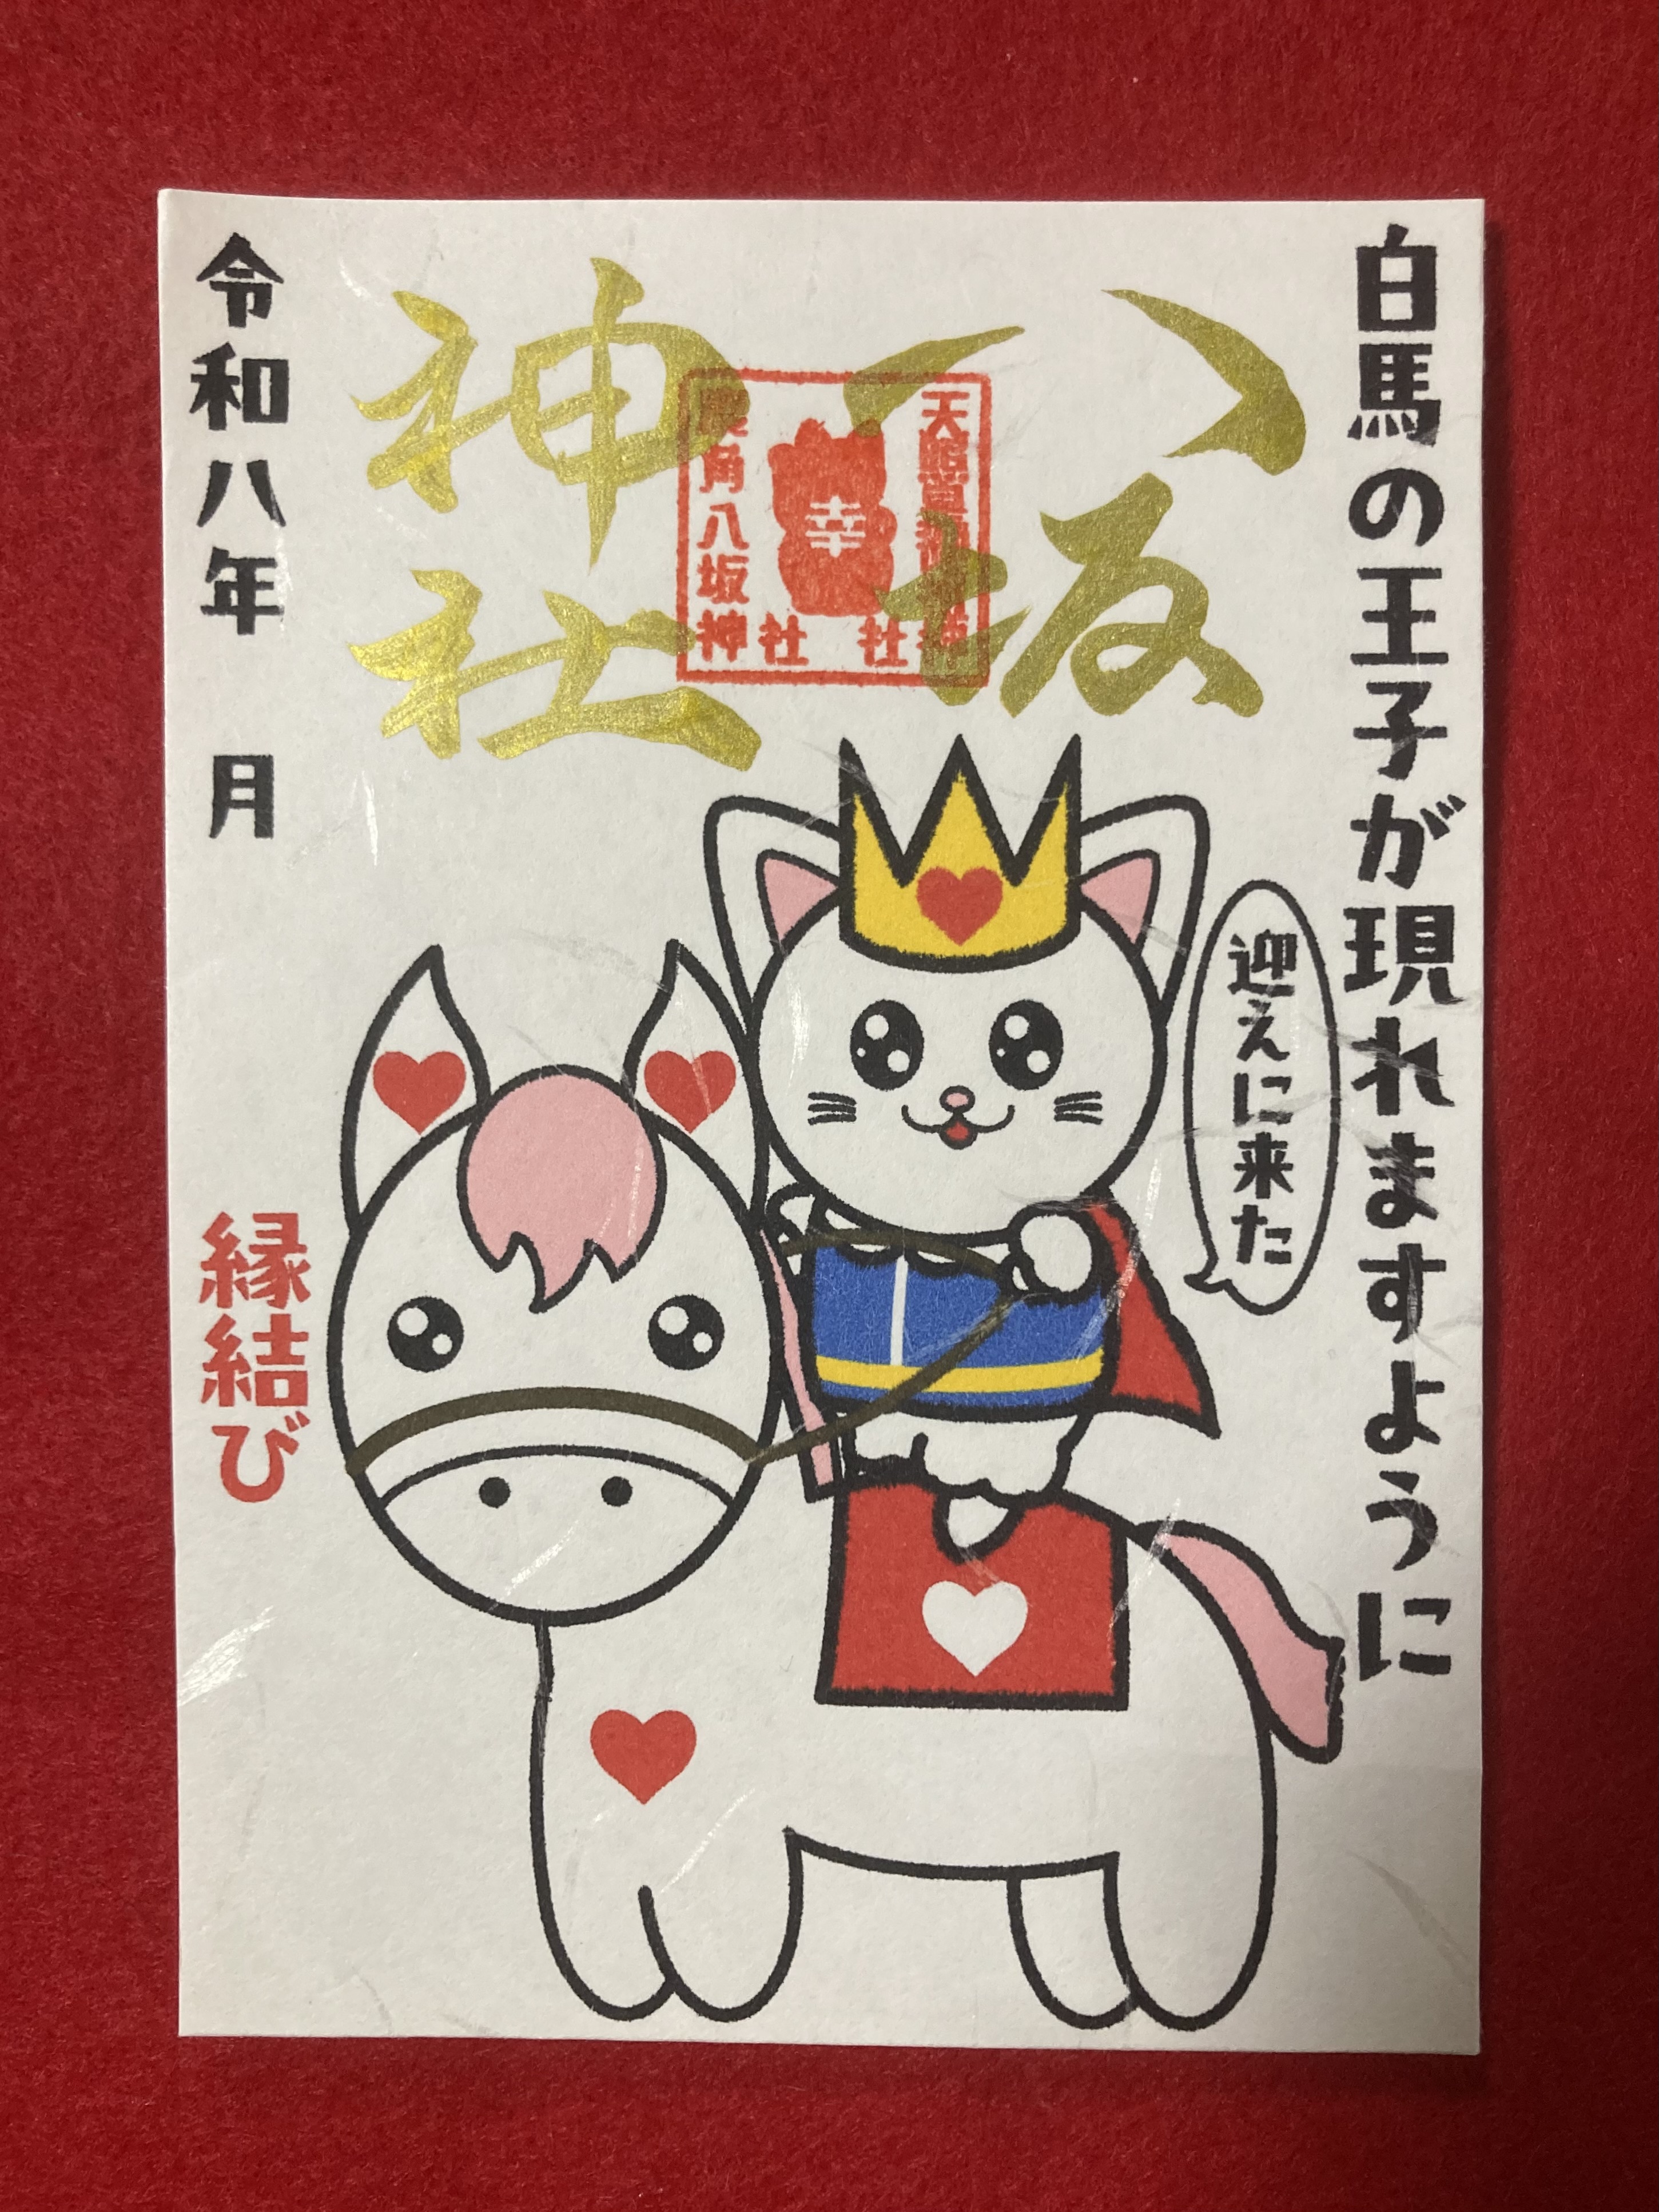 白馬の王子が現れますように
八坂
神社
天
神社
鹿角八坂
神社
幸
迎えに来た
令和八年 月
縁結び